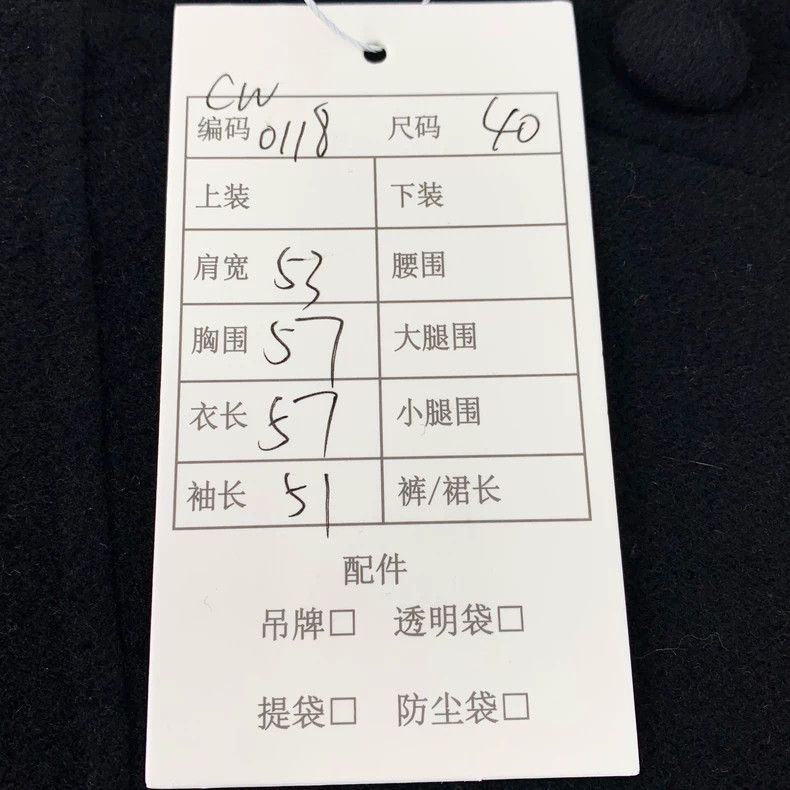 CW
编码 0118 尺码 40
上装 下装
肩宽 53 腰围
胸围 57 大腿围
衣长 57 小腿围
袖长 51 裤/裙长
配件
吊牌□ 透明袋□
提袋□ 防尘袋□